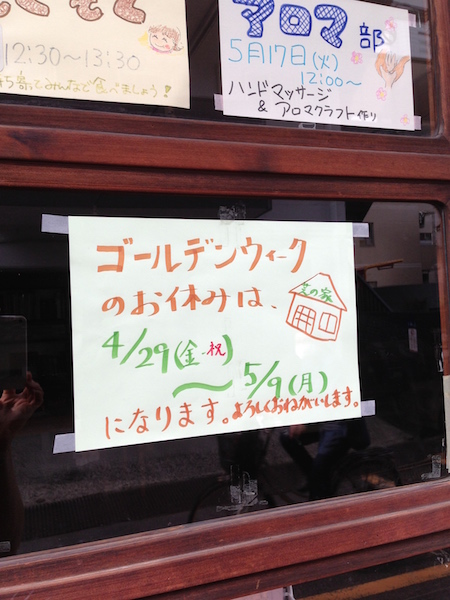 12:30〜13:30
ち寄ってみんなで食べましょう!
アロマ部
5月17日(火)
12:00〜
ハンドマッサージ
& アロマクラフト作り
ゴールデンウィーク
のお休みは、
芝の家
4/29(金・祝)
〜5/9(月)
になります。よろしくおねがいします。